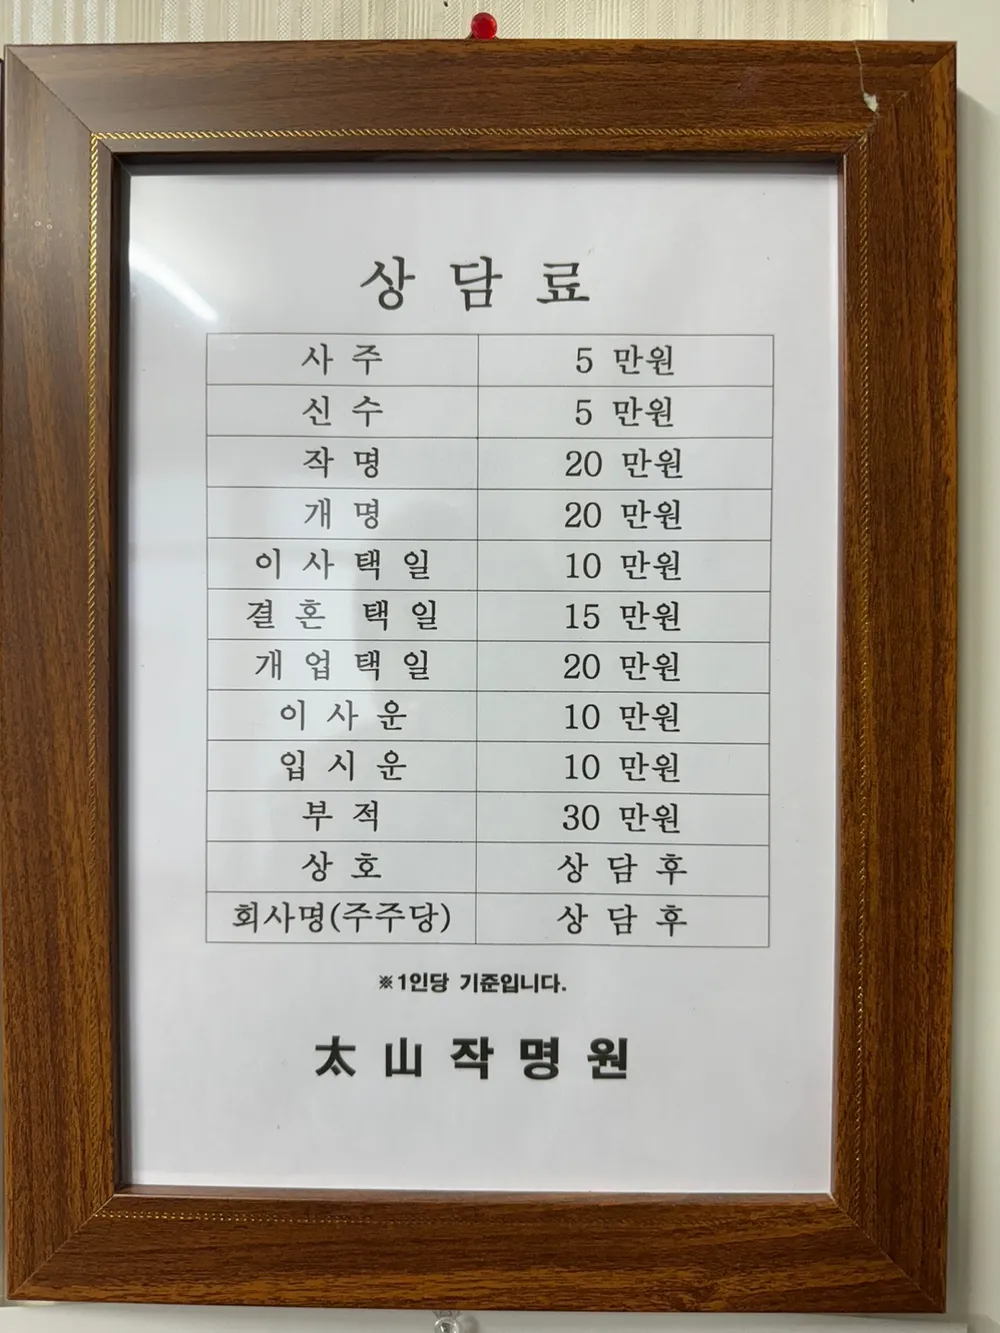 상 담 료
사 주 5 만원
신 수 5 만원
작 명 20 만원
개 명 20 만원
이 사 택 일 10 만원
결 혼 택 일 15 만원
개 업 택 일 20 만원
이 사 운 10 만원
입 시 운 10 만원
부 적 30 만원
상 호 상 담 후
회사명(주주당) 상 담 후
※1인당 기준입니다.
太 山 작 명 원